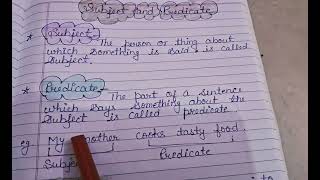 Subject and Predicate
* Subject - The person or thing about
which something is said is called
subject.
* Predicate - The part of a sentence
which says something about the
subject is called predicate
eg My mother cooks tasty food.
Subject Predicate